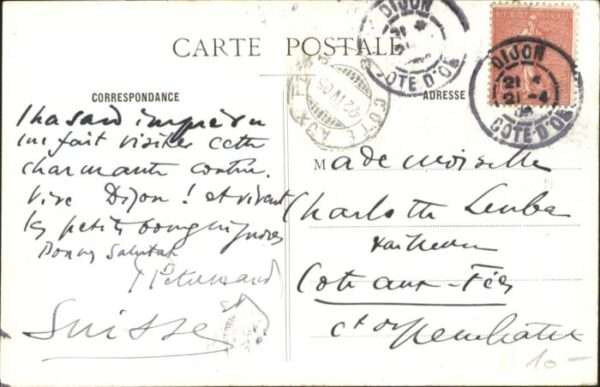 CARTE POSTALE
CORRESPONDANCE
ADRESSE
DIJON
COTE D'OR
DIJON
21 - 4
COTE D'OR
COTE AUX FEES
22 IV 05
l hasard imprévu
me fait visiter cette
charmante contrée.
Vive Dijon ! et vivent
les petits bourguignons
Bonnes Salutat
Suisse
Mademoiselle
Charlotte Leuba
Côte aux-Fées
Ct de Neuchatel
10-